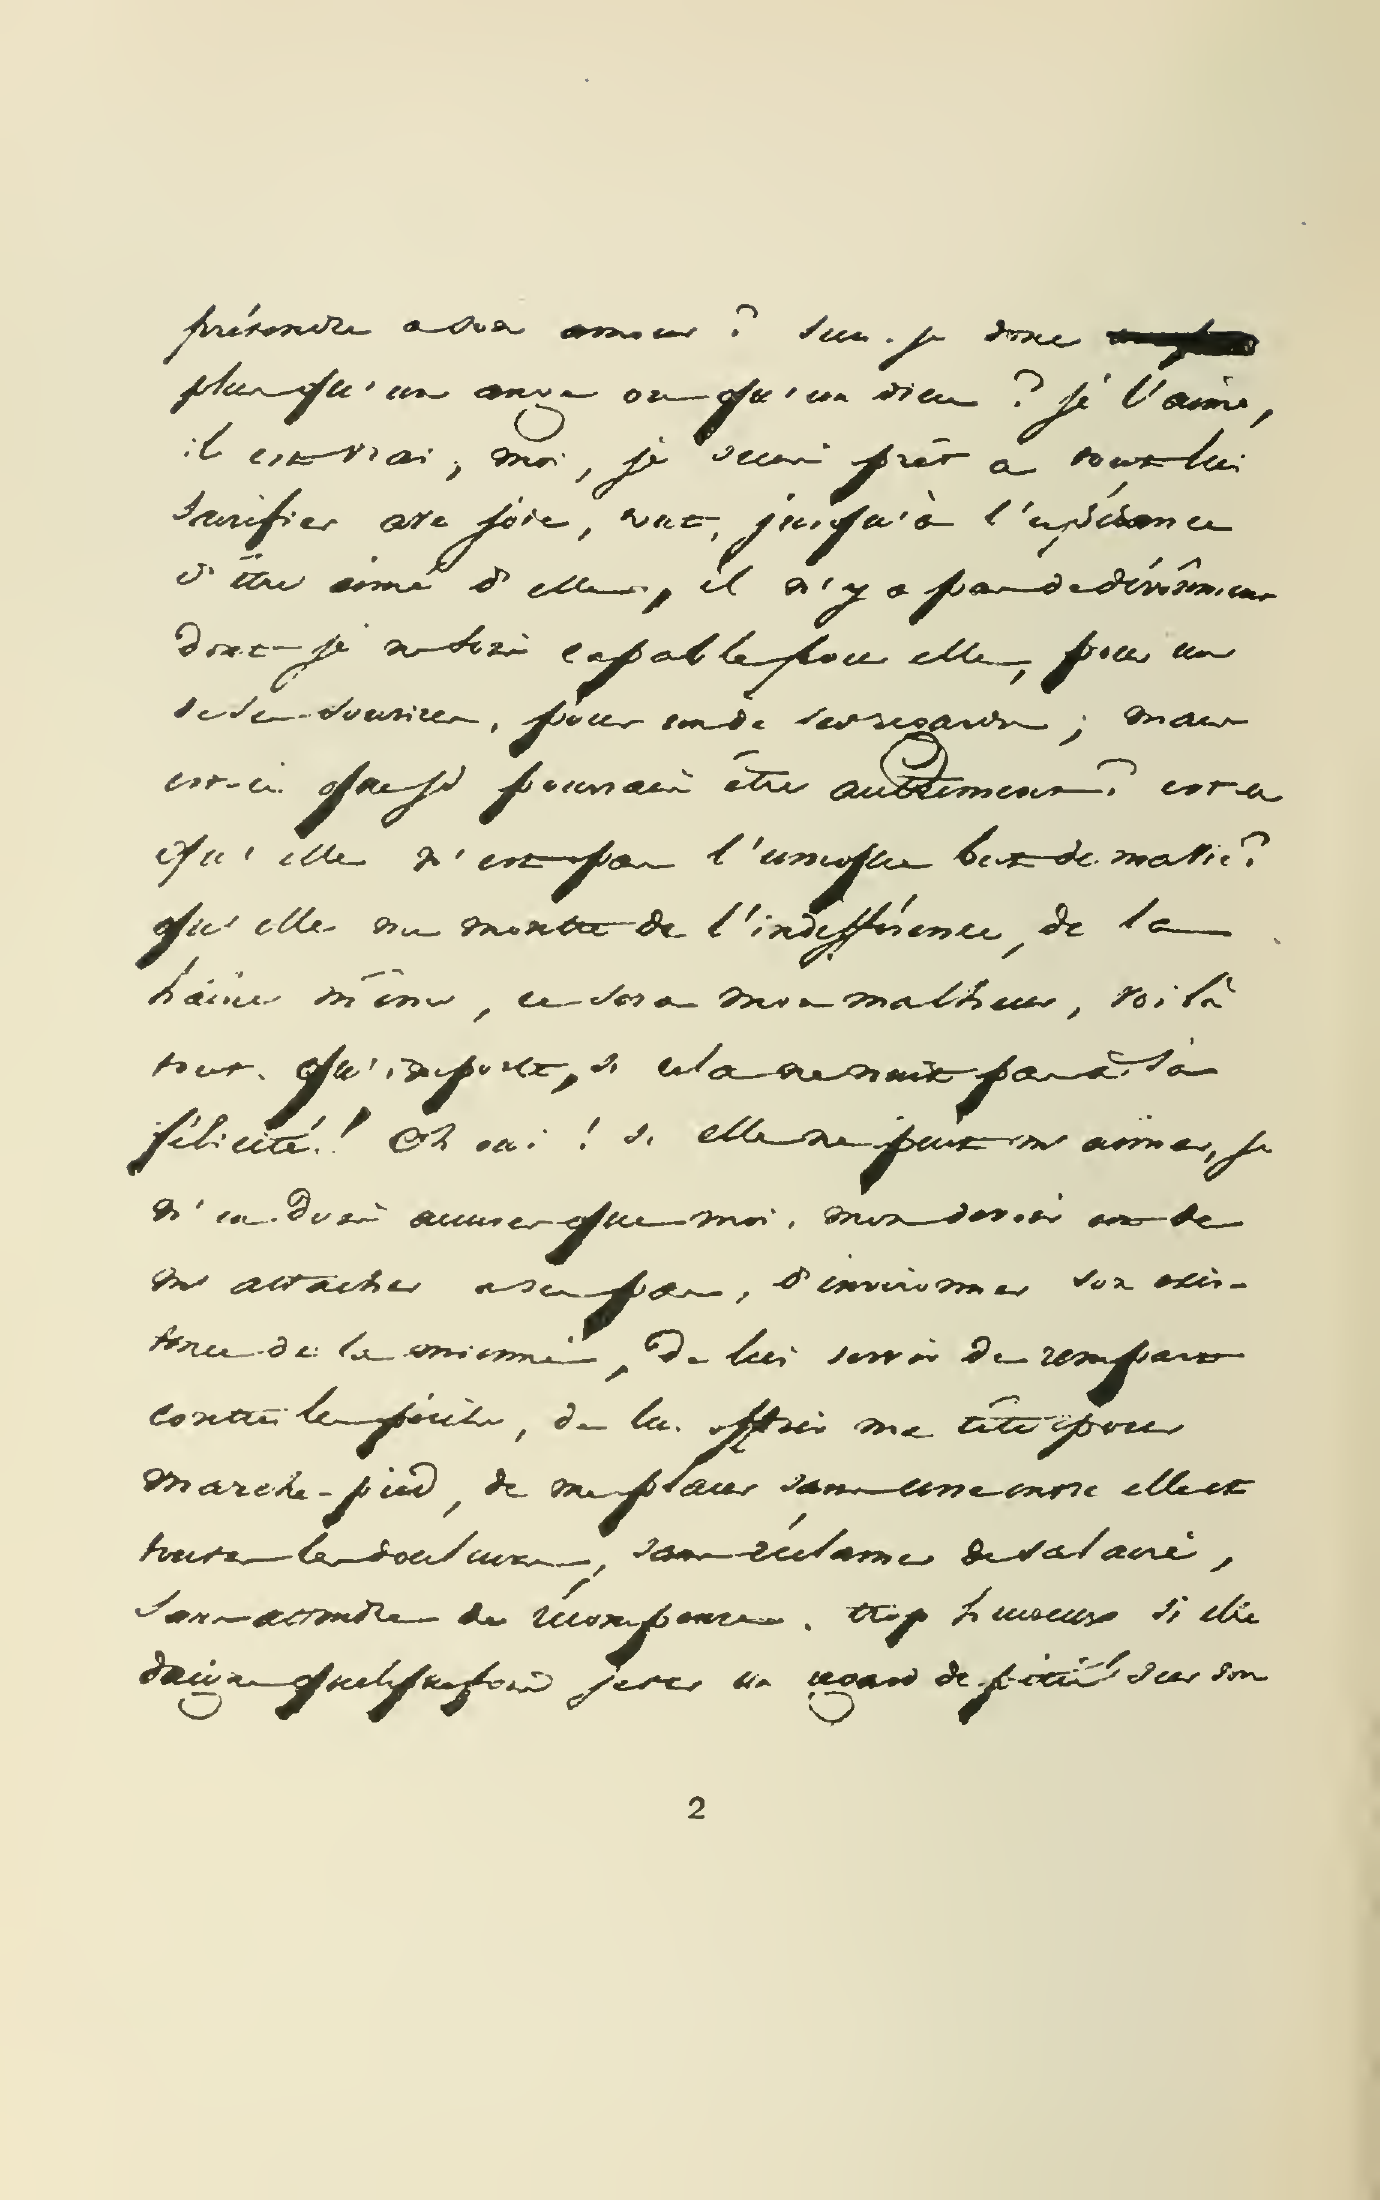 prétendre a son amour ? suis-je donc
plus qu'un ange ou qu'un dieu ? je l'aime,
il est vrai, moi, je serais prêt a tout lui
sacrifier avec joie, tout, jusqu'à l'espérance
d'être aimé d'elle, il n'y a pas de dévoûment
dont je ne sois capable pour elle, pour un
de ses sourires, pour un de ses regards ; mais
est-ce que je pourrais être autrement ? est-ce
qu'elle n'est pas l'unique but de ma vie ?
qu'elle me montre de l'indifférence, de la
haine même, ce sera mon malheur, voilà
tout. qu'importe, si cela ne nuit pas à sa
félicité ! Oh oui ! si elle ne peut m'aimer, je
n'en dois accuser que moi. mon devoir est de
m'attacher a ses pas, d'environner son exis-
tence de la mienne, de lui servir de rempart
contre les périls, de lui offrir ma tête pour
marche-pied, de me placer sans cesse entre elle et
toutes les douleurs, sans réclamer de salaire,
sans attendre de récompense. trop heureux si elle
daigne quelquefois jeter un regard de pitié sur son
2